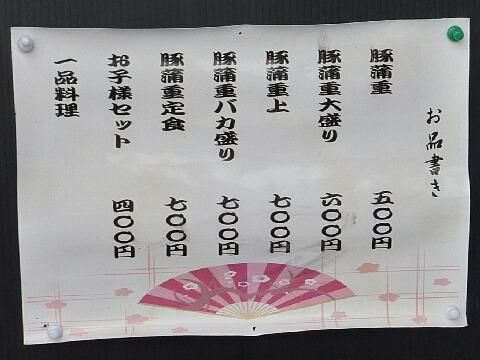 お品書き
豚蒲重 五〇〇円
豚蒲重大盛り 六〇〇円
豚蒲重上 七〇〇円
豚蒲重バカ盛り 七〇〇円
豚蒲重定食 七〇〇円
お子様セット 四〇〇円
一品料理